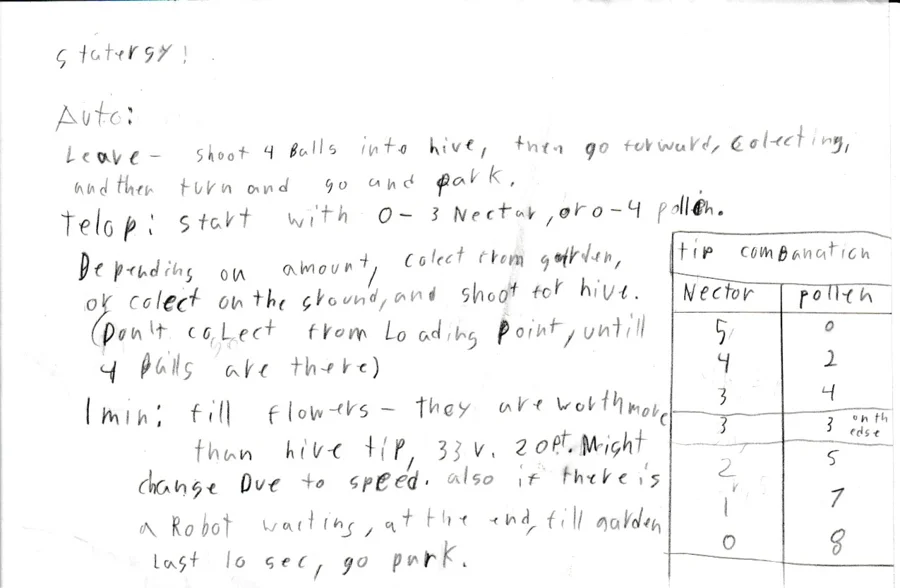 statergy!
Auto:
Leave - shoot 4 Balls into hive, then go forward, Colecting,
and then turn and go and park.
Telop: start with 0-3 Nectar, or 0-4 pollen.
Depending on amount, colect from garden,
or colect on the ground, and shoot for hive.
(Don't colect from Loading Point, untill
4 Balls are there)
1min: fill flowers - they are worth more
than hive tip, 33 v. 20pt. Might
change Due to speed. also if there is
a Robot waiting, at the end, fill garden
Last 10 sec, go park.
tip comBanation
Nector pollen
5 0
4 2
3 4
3 3 on th edge
2 5
1 7
0 8